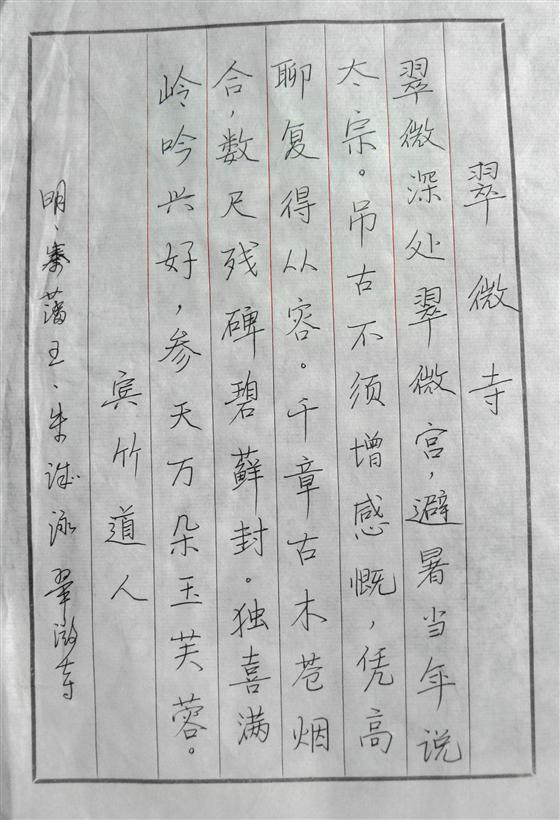 翠微寺
翠微深处翠微宫,避暑当年说
太宗。吊古不须增感慨,凭高
聊复得从容。千章古木苍烟
合,数尺残碑碧藓封。独喜满
岭吟兴好,参天万朵玉芙蓉。
宾竹道人
明、秦藩王、朱诚泳 翠微寺